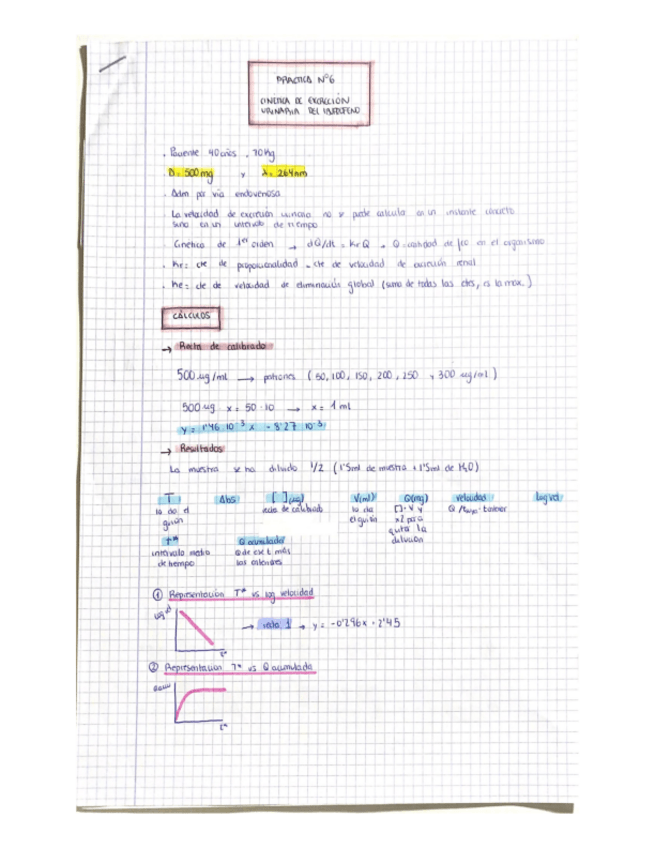 PRACTICA Nº6
CINETICA DE EXCRECIÓN
URINARIA DEL IBUPROFENO
. Paciente 40 años , 70 kg
D = 500 mg y λ = 264 nm
. Adm por via endovenosa
. La velocidad de excreción urinaria no se puede calcular en un instante concreto
sino en un intervalo de tiempo
. Cinetica de 1er orden → dQ/dt = Kr Q → Q = cantidad de fco en el organismo
. Kr = cte de proporcionalidad = cte de velocidad de excreción renal
. Ke = cte de velocidad de eliminación global (suma de todas las ctes, es la max.)
CÁLCULOS
→ Recta de calibrado
500 ug/ml → patrones ( 50, 100, 150, 200, 250 y 300 ug/ml )
500 ug x = 50 · 10 → x = 1 ml
y = 1'46 · 10⁻³ x - 8'27 · 10⁻³
→ Resultados
La muestra se ha diluido 1/2 ( 1'5ml de muestra + 1'5ml de H₂O)
T Abs [ ] (ug) V(ml) Q(mg) velocidad log vel
lo da el recta de calibrado lo da [] · V y Q / tiempo
guión el guión x2 para
quitar la
dilución
t* Q acumulada
intervalo medio Q de ext más
de tiempo las anteriores
① Representación T* vs log velocidad
log vel
→ recta 1 → y = -0'296x - 2'45
t*
② Representación T* vs Q acumulada
Qacum
t*